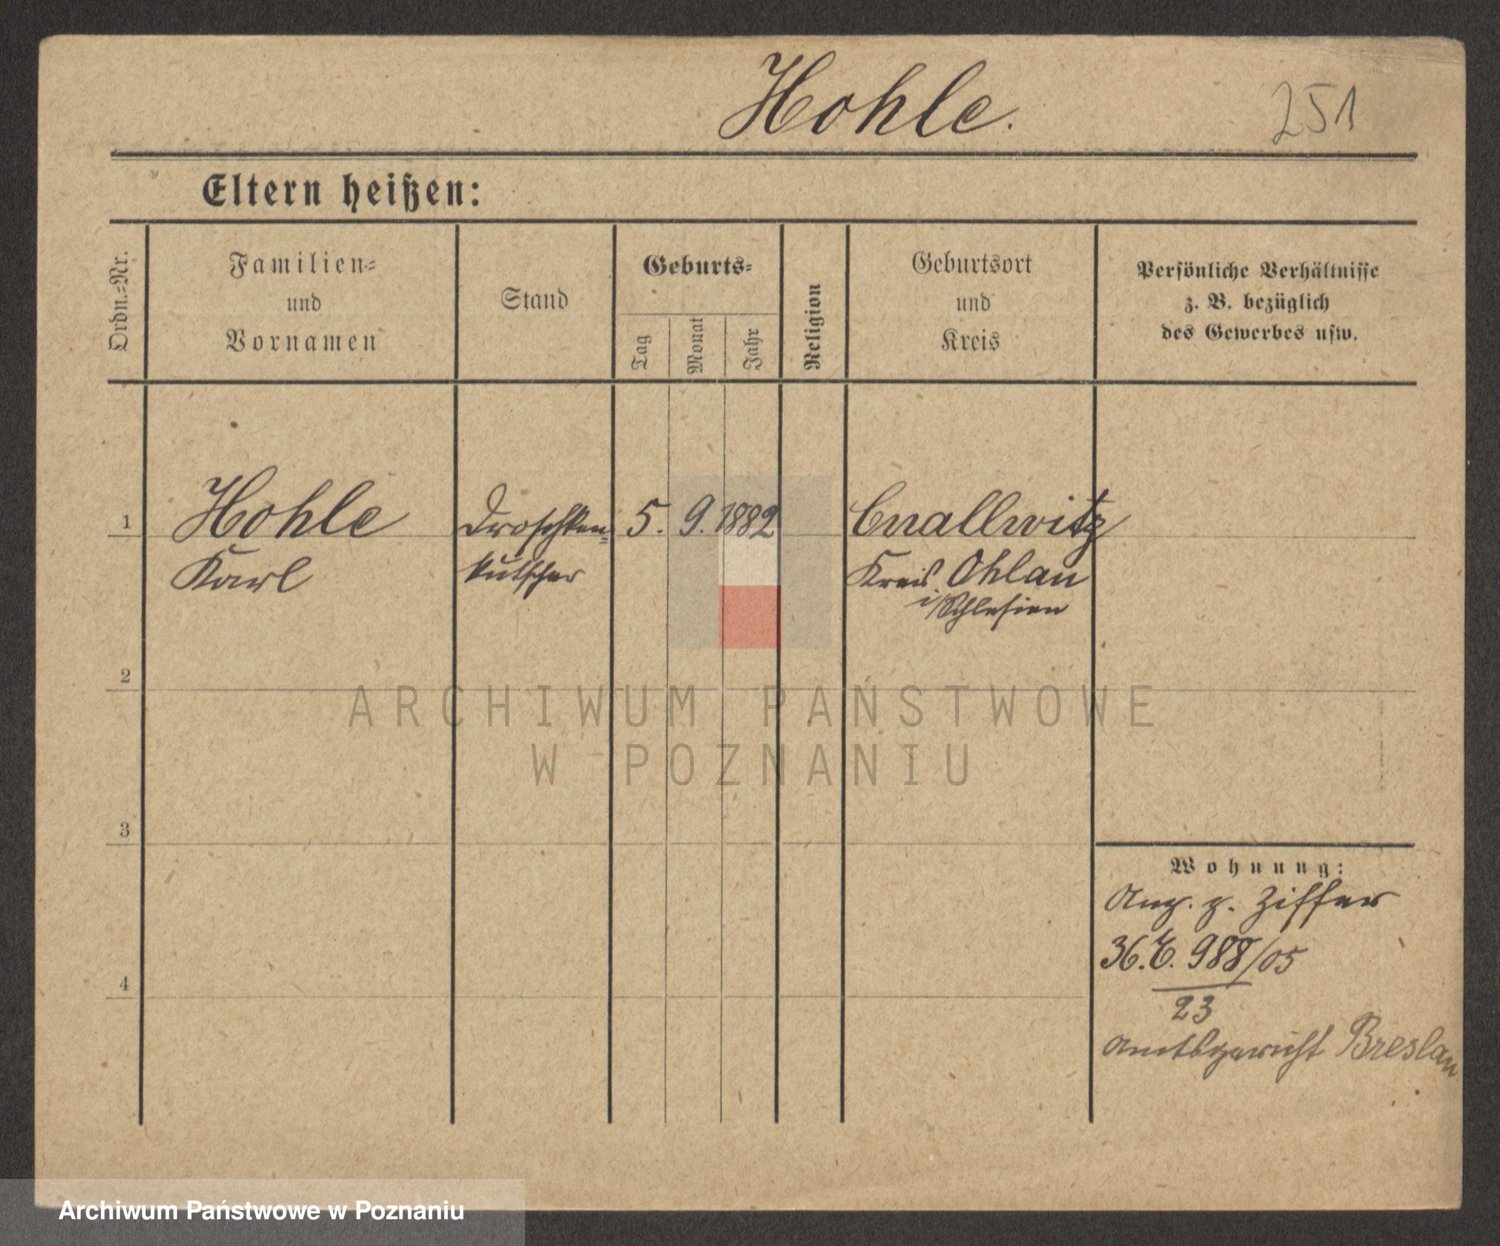 Hohle.
251
Eltern heißen:
Ordn.-Nr.
Familien-
und
Vornamen
Stand
Geburts-
Tag
Monat
Jahr
Religion
Geburtsort
und
Kreis
Persönliche Verhältnisse
z. B. bezüglich
des Gewerbes usw.
1
Hohle
Karl
Droschken-
kutscher
5. 9. 1882
Cnallwitz
Kreis Ohlau
i/Schlesien
2
ARCHIWUM PAŃSTWOWE
W POZNANIU
3
4
Wohnung:
Ang. z. Ziffer
36. E. 988/05
23
Amtsgericht Breslau
Archiwum Państwowe w Poznaniu